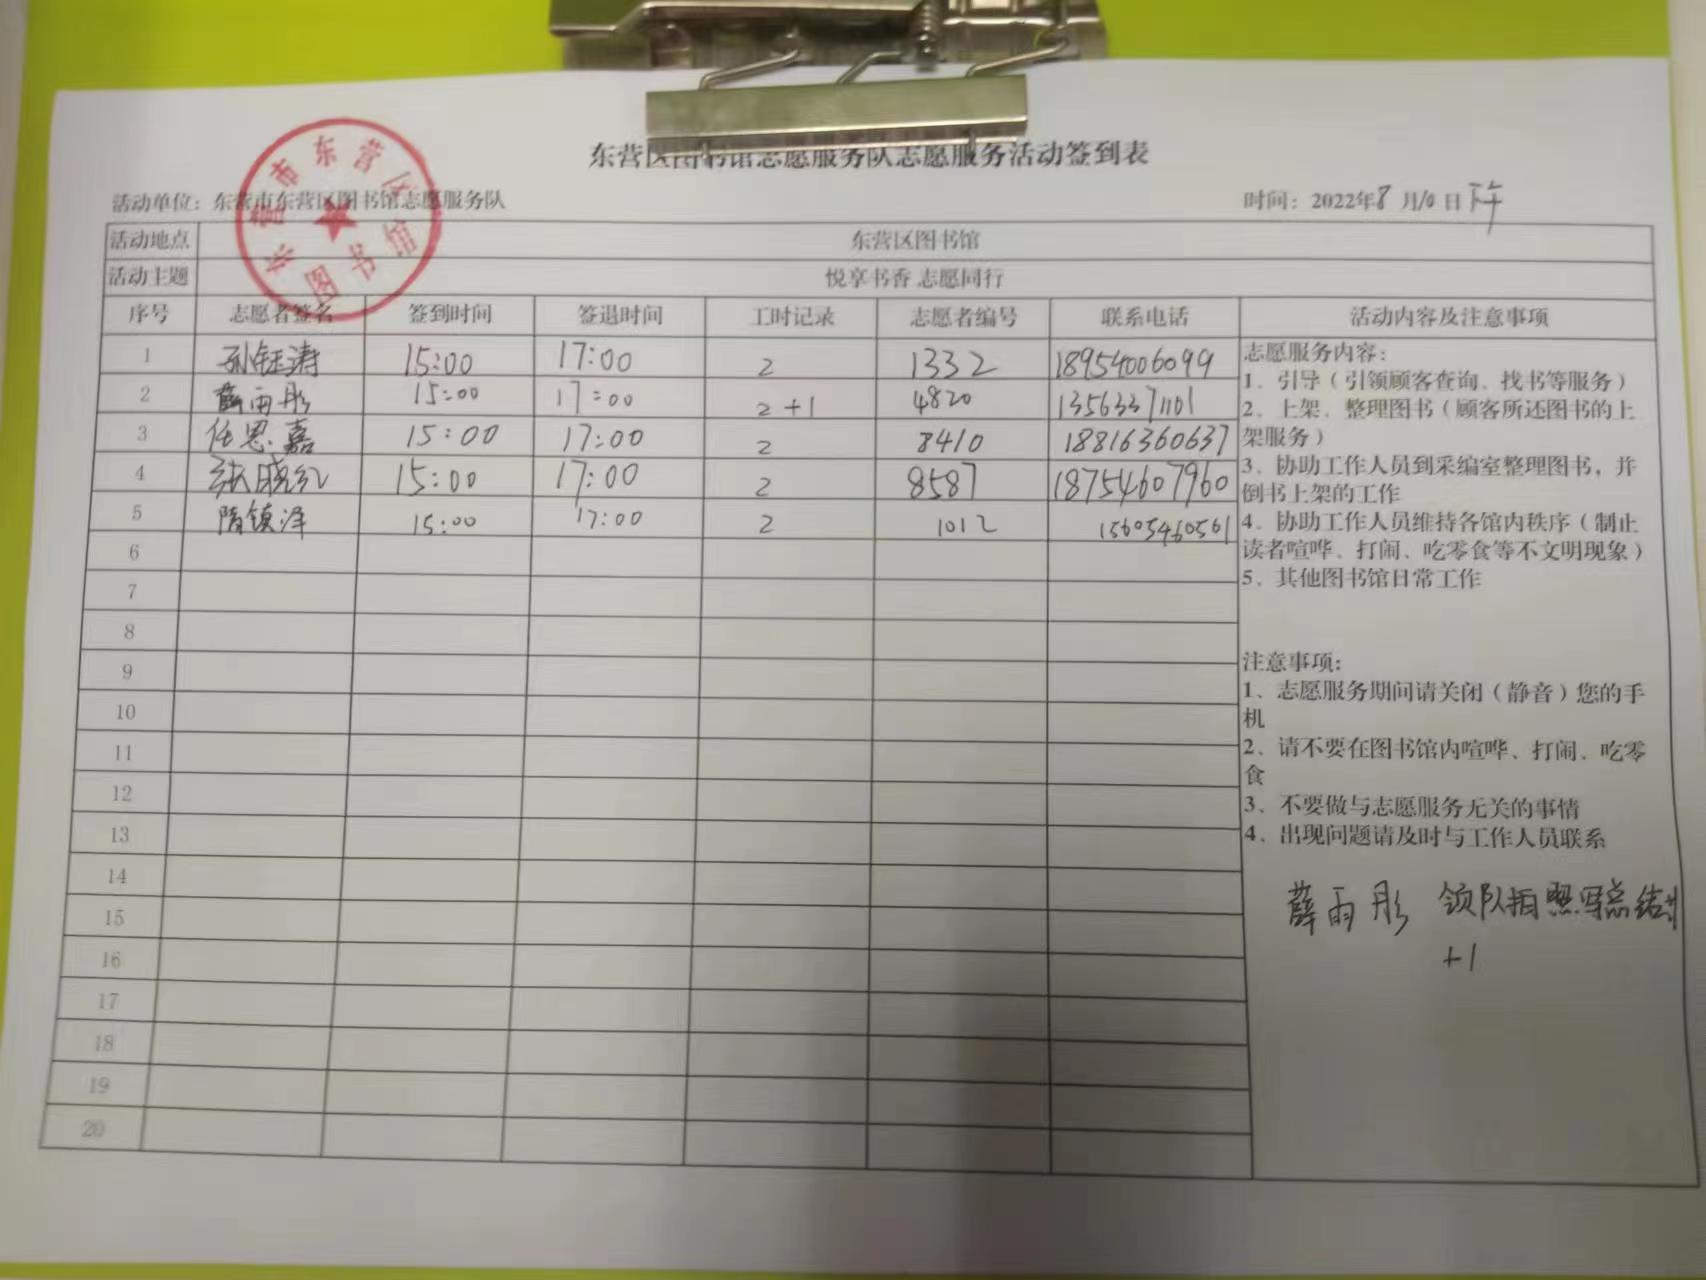 东营区图书馆志愿服务队志愿服务活动签到表
东营市东营区图书馆
活动单位：东营市东营区图书馆志愿服务队 时间：2022年8月10日下午
活动地点 东营区图书馆
活动主题 悦享书香 志愿同行
序号 志愿者签名 签到时间 签退时间 工时记录 志愿者编号 联系电话 活动内容及注意事项
1 孙钰涛 15:00 17:00 2 1332 18954006099
2 薛雨彤 15:00 17:00 2+1 4820 13563371101
3 任思嘉 15:00 17:00 2 8410 18816360637
4 张晓红 15:00 17:00 2 8587 18754607960
5 隋镇泽 15:00 17:00 2 1012 15605460561
6
7
8
9
10
11
12
13
14
15
16
17
18
19
20
志愿服务内容：
1、引导（引领顾客查询、找书等服务）
2、上架、整理图书（顾客所还图书的上
架服务）
3、协助工作人员到采编室整理图书，并
倒书上架的工作
4、协助工作人员维持各馆内秩序（制止
读者喧哗、打闹、吃零食等不文明现象）
5、其他图书馆日常工作
注意事项：
1、志愿服务期间请关闭（静音）您的手
机
2、请不要在图书馆内喧哗、打闹、吃零
食
3、不要做与志愿服务无关的事情
4、出现问题请及时与工作人员联系
薛雨彤 领队拍照写总结
+1